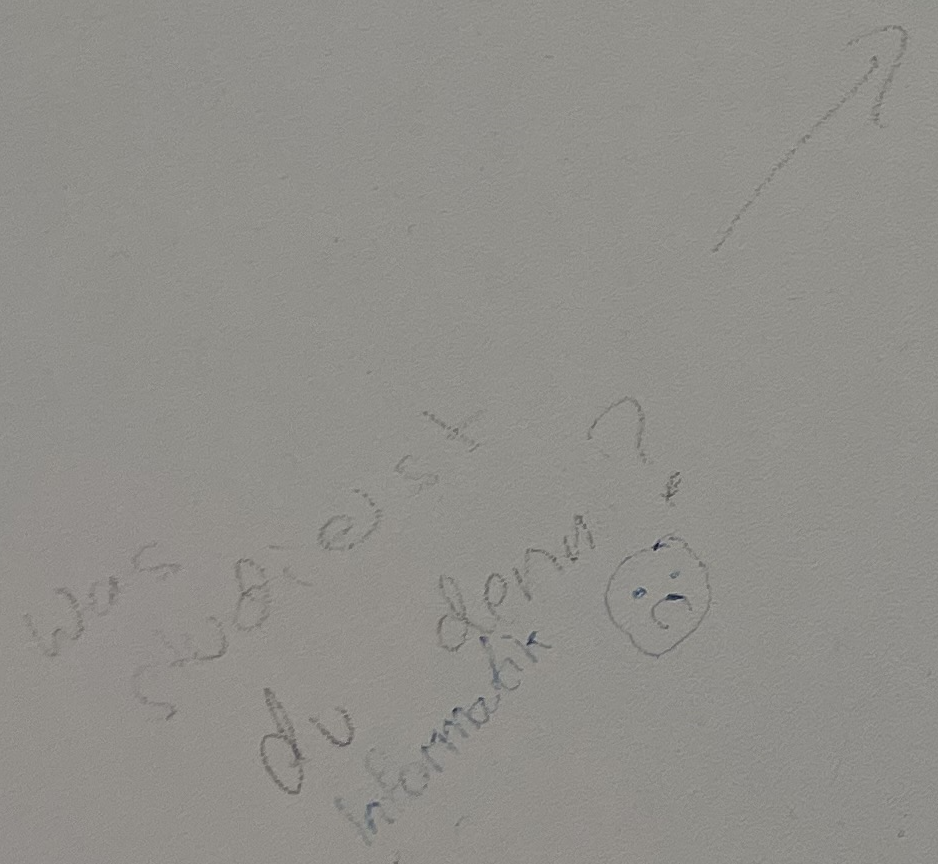 Was
studierst
du denn?
Informatik